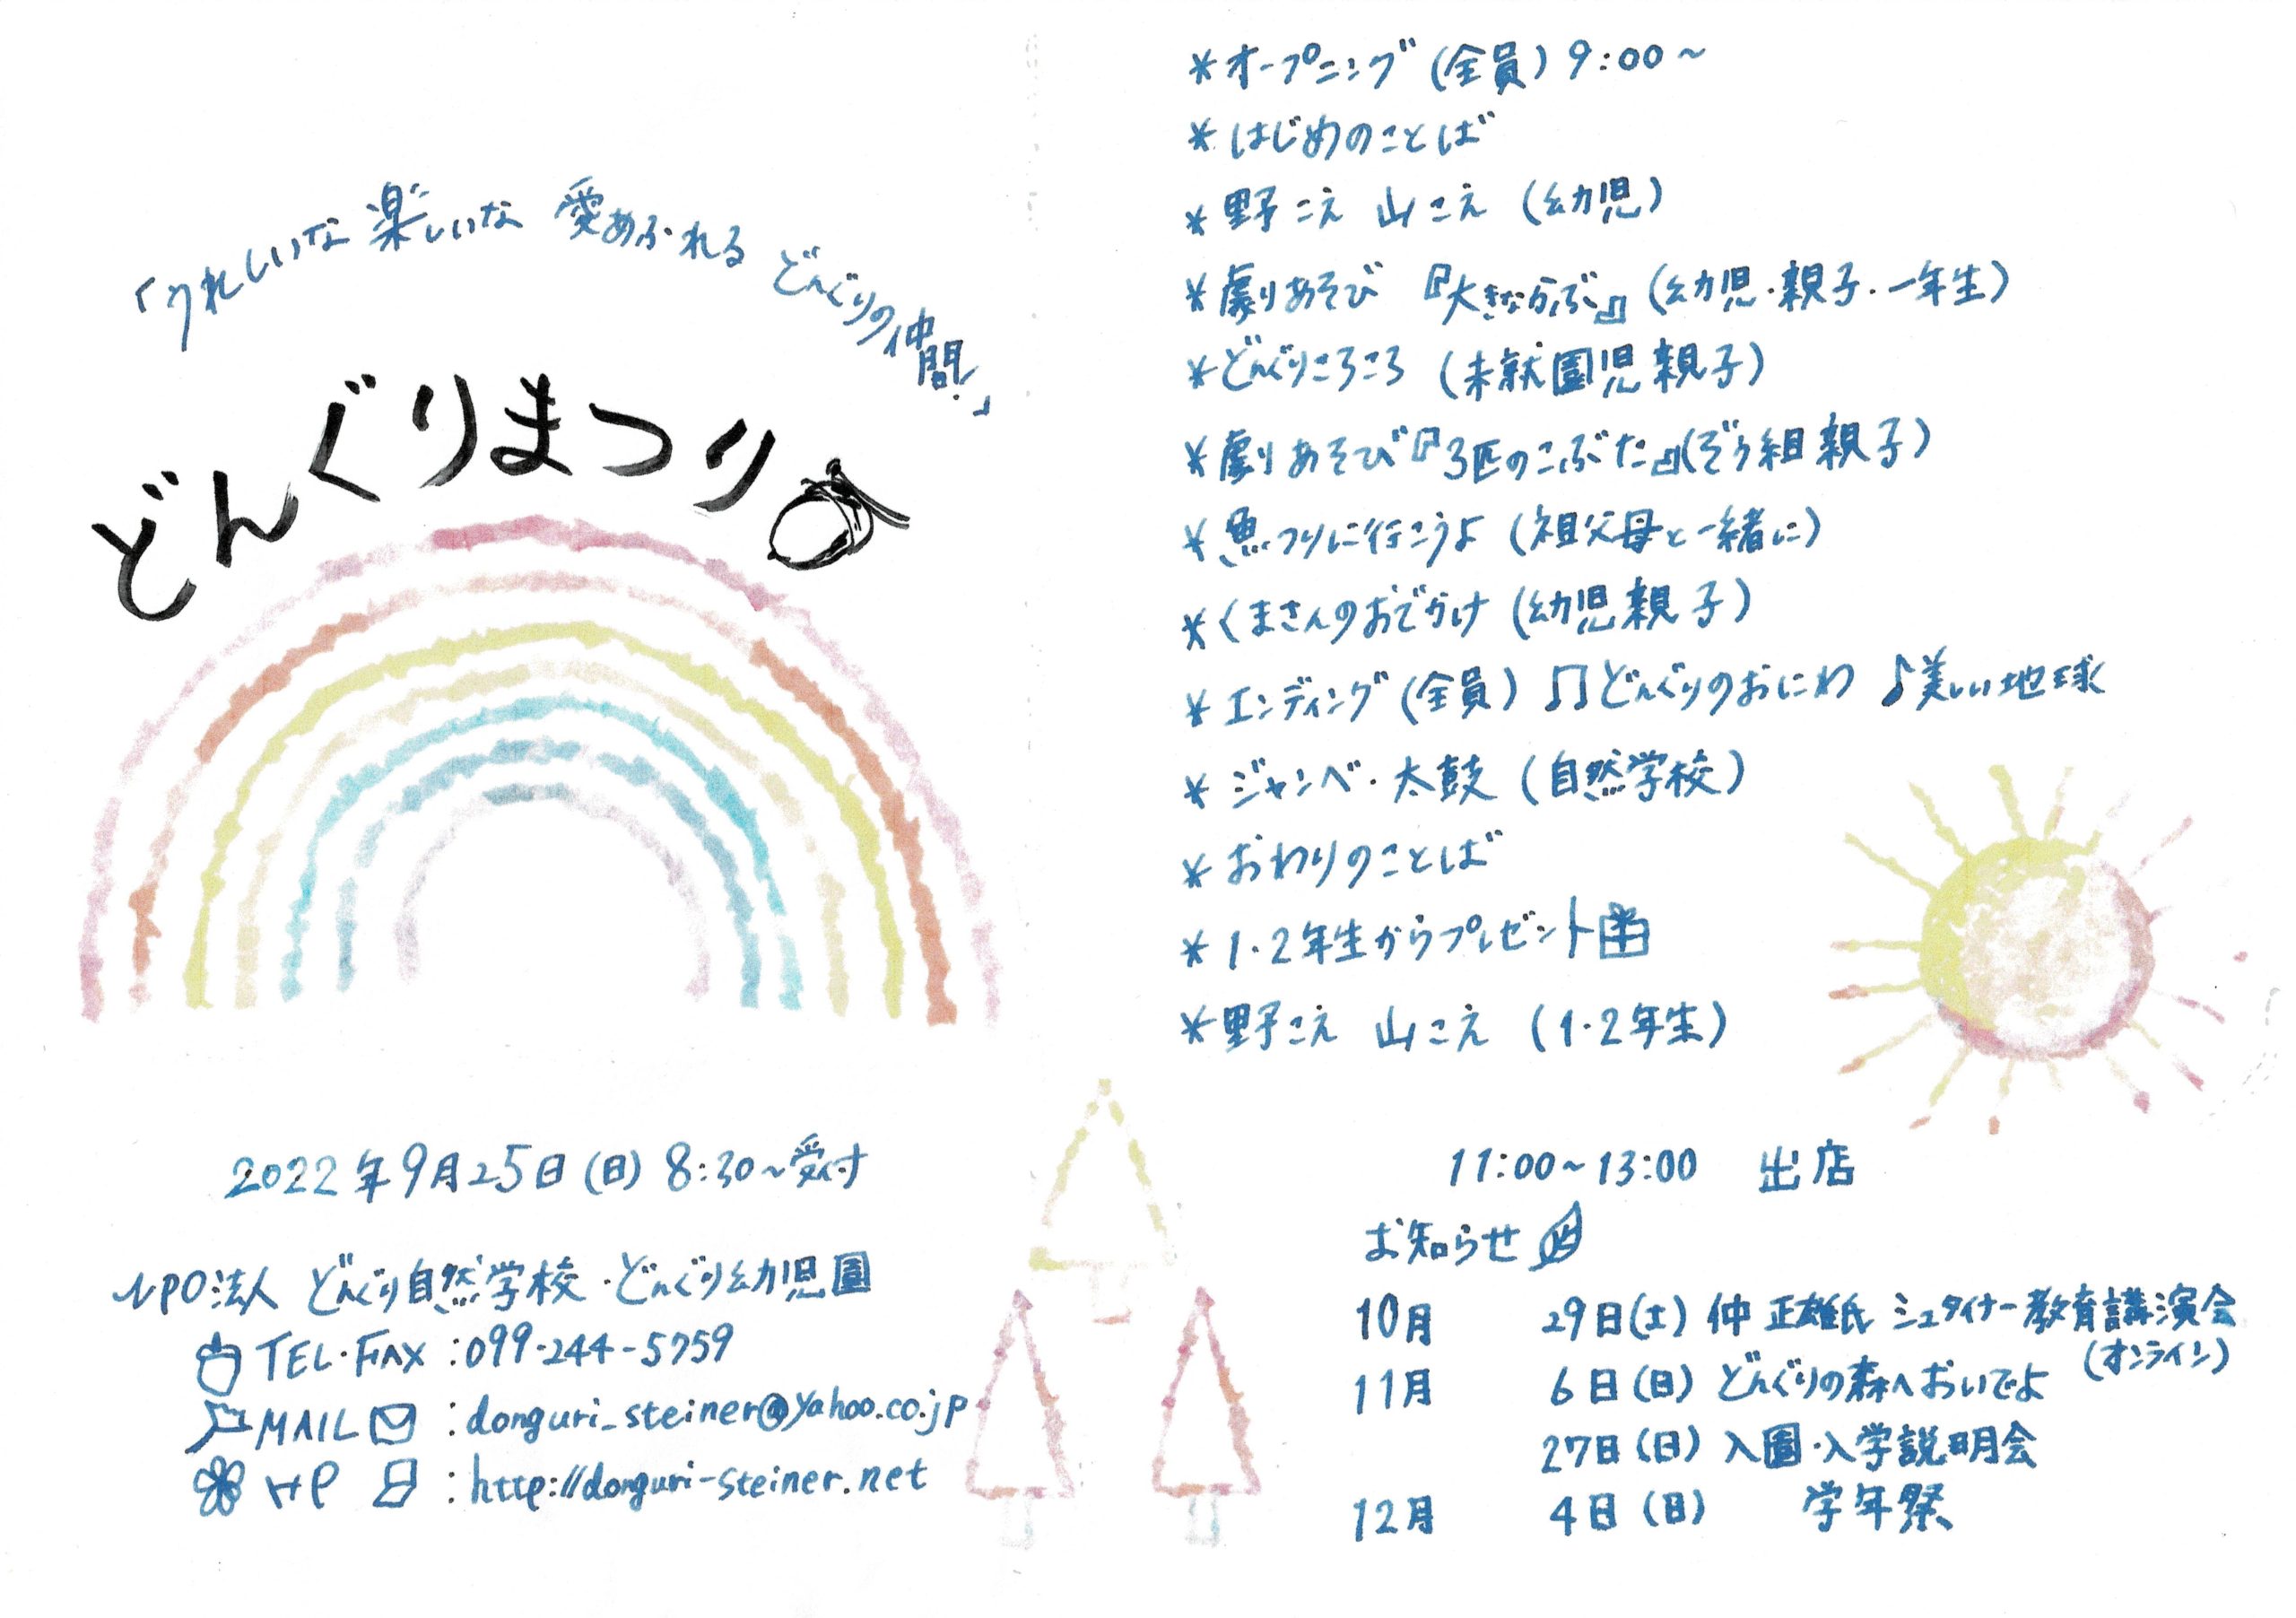 「うれしいな 楽しいな 愛あふれる どんぐりの仲間」
どんぐりまつり
2022年9月25日(日) 8:30~受付
NPO法人 どんぐり自然学校・どんぐり幼児園
TEL・FAX :099-244-5759
MAIL :donguri_steiner@yahoo.co.jp
HP :http://donguri-steiner.net
*オープニング (全員) 9:00~
*はじめのことば
*野こえ 山こえ (幼児)
*劇あそび 『大きなかぶ』 (幼児・親子・一年生)
*どんぐりころころ (未就園児親子)
*劇あそび『3匹のこぶた』(ぞう組親子)
*魚つりに行こうよ (祖父母と一緒に)
*くまさんのおでかけ (幼児親子)
*エンディング (全員) ♫どんぐりのおにわ ♪美しい地球
*ジャンベ・太鼓 (自然学校)
*おわりのことば
*1・2年生からプレゼント
*野こえ 山こえ (1・2年生)
11:00~13:00 出店
お知らせ
10月 29日(土) 仲 正雄氏 シュタイナー教育講演会
(オンライン)
11月 6日(日) どんぐりの森へおいでよ
27日(日) 入園・入学説明会
12月 4日(日) 学年祭